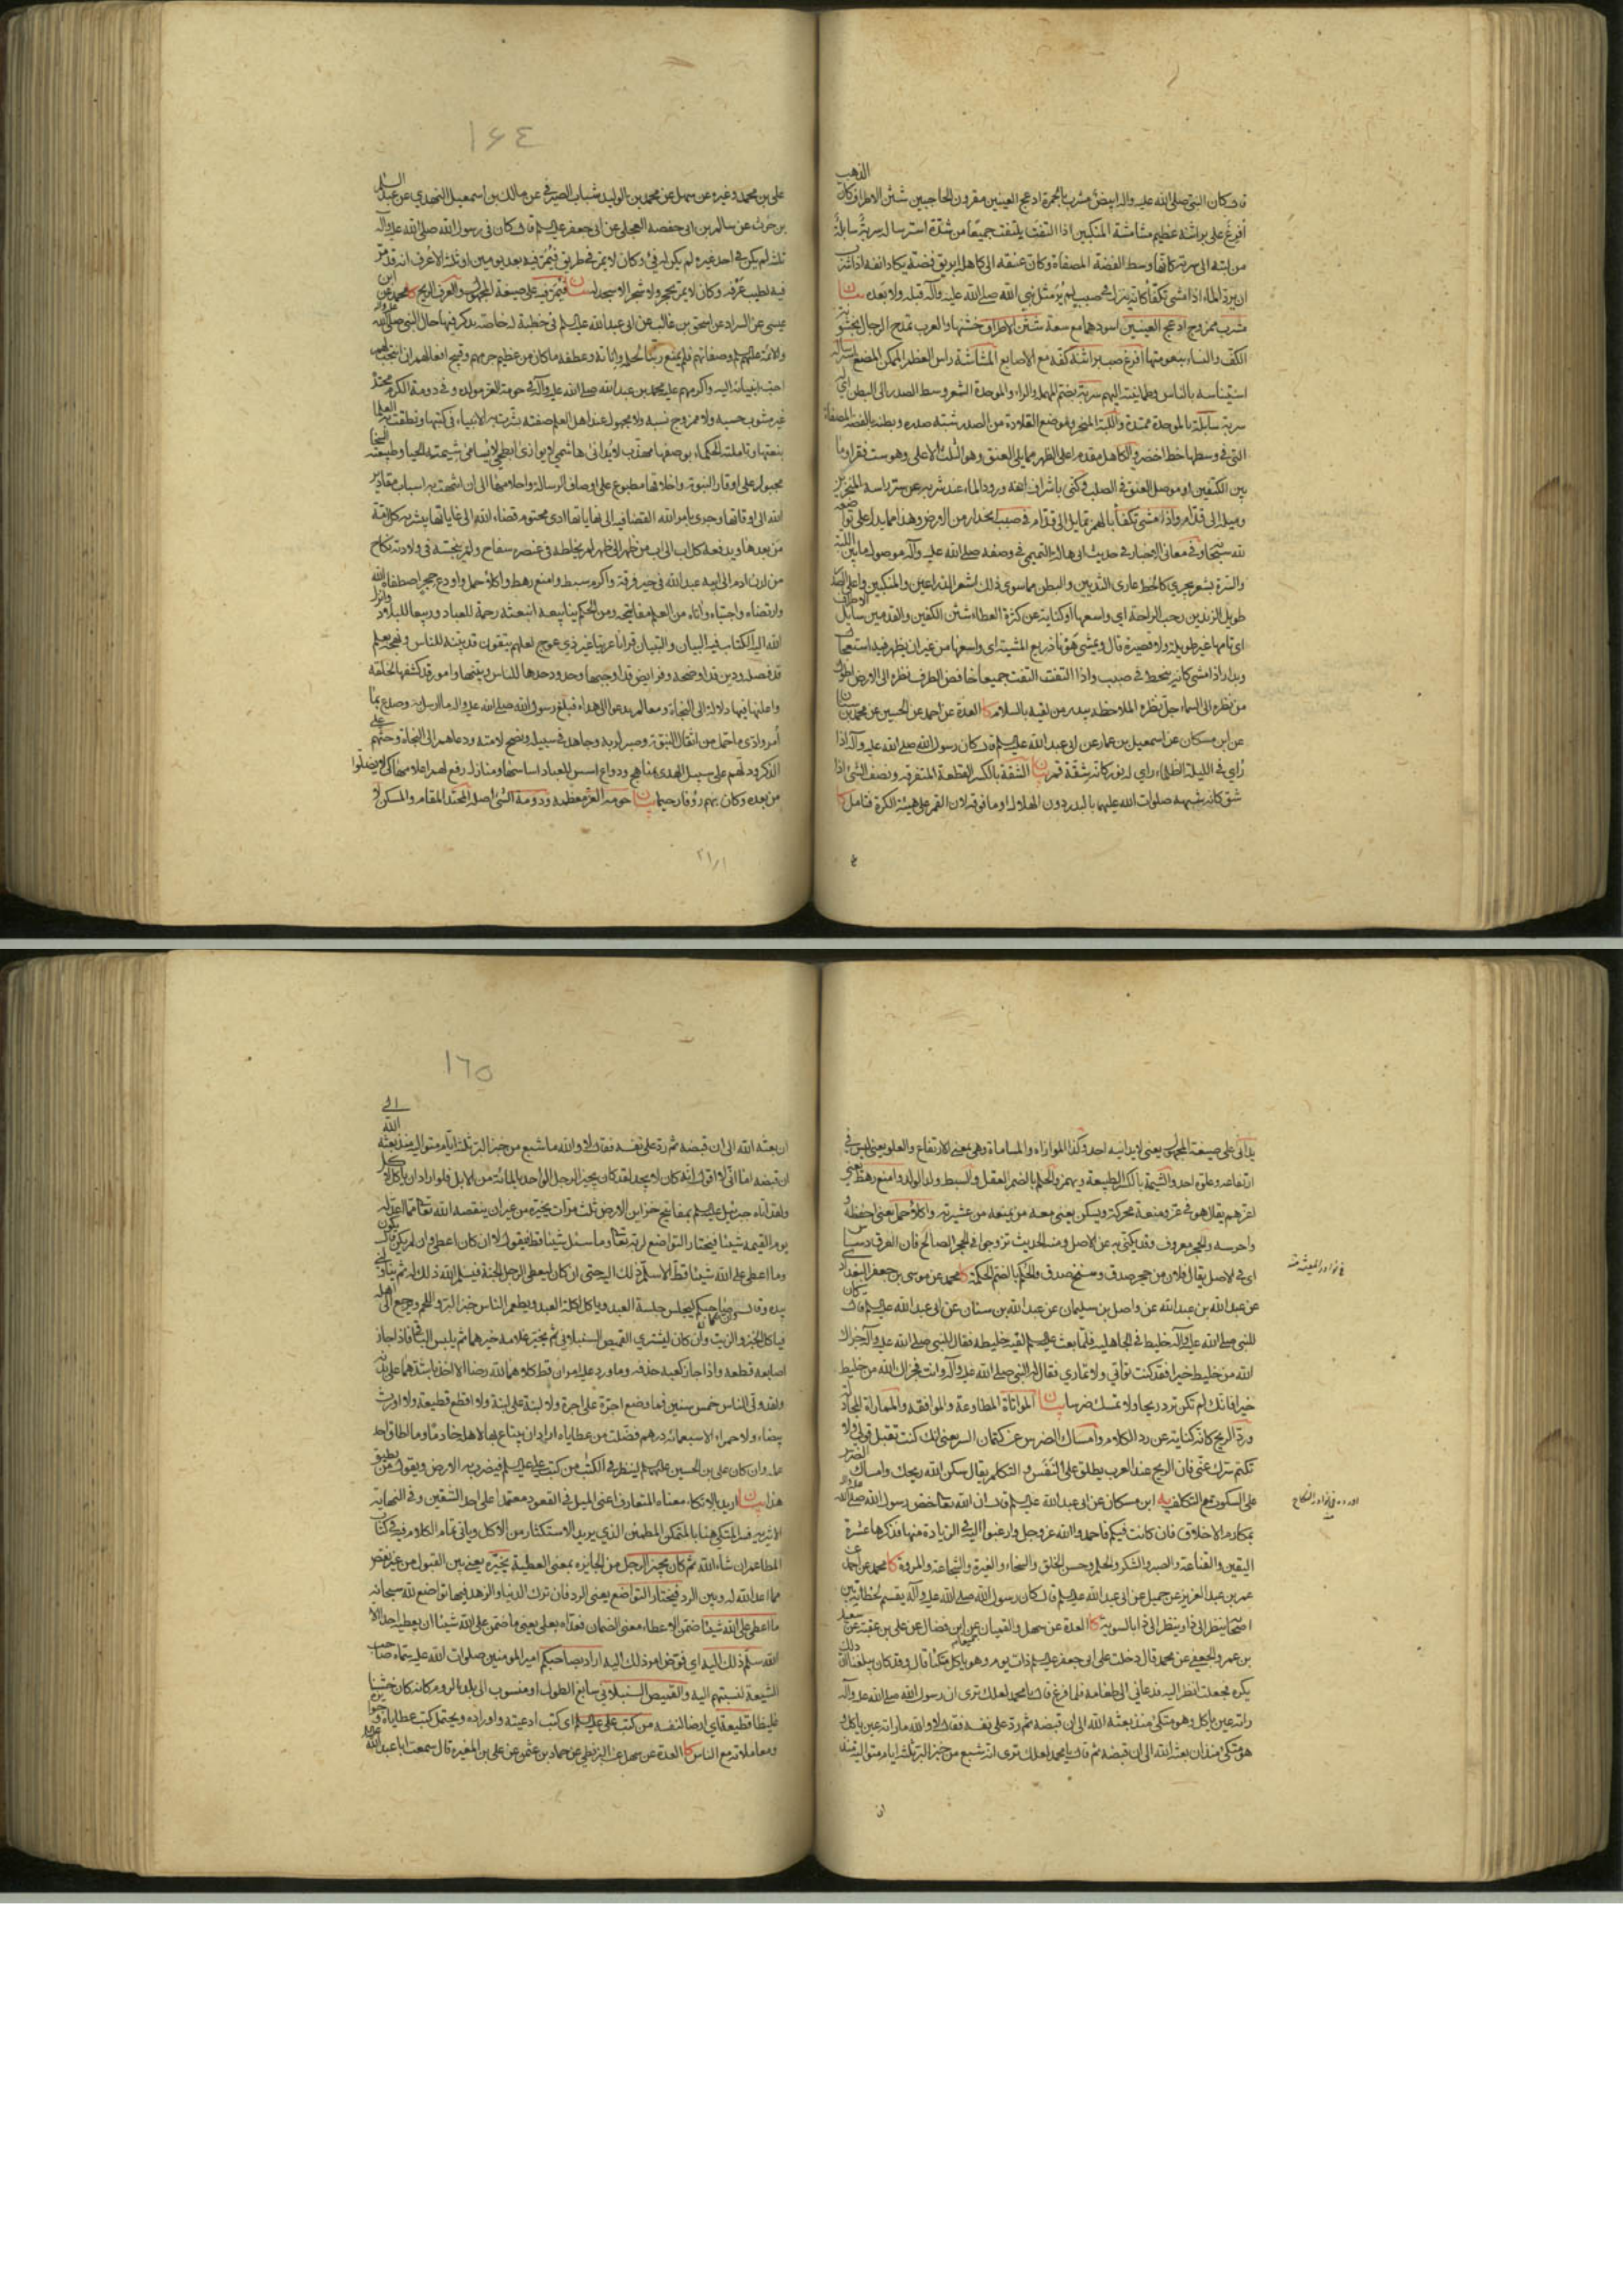 الذهب
قال كان النبي صلى الله عليه وآله ابيض مشرب بالحمرة ادعج العينين مقرون الحاجبين شثن الاطراف كأن
افرغ على براثنه عظيم مشاشة المنكبين اذا التفت يلتفت جميعا من شدة استرساله سربته سابلة
من لبته الى سرته كانها وسط الفضة المصفاة وكان عنقه الى كاهله ابريق فضة يكاد انفه اذا شرب
ان يرد الماء اذا مشى تكفأ كانه ينزل في صبب لم ير مثل نبي الله صلى الله عليه وآله قبله ولا بعده بيان
مشرب ممزوج ادعج العينين اسودهما مع سعة شثن الاطراف خشنها والعرب تمدح الرجال بخشونة
الكف والنساء بنعومتها افرغ صب براثنه كفه مع الاصابع المشاشة راس العظم الممكن المضغ استرساله
استيناسه بالناس وطمانينته اليهم سربة بضم المهملة والراء والموحدة الشعر وسط الصدر الى البطن اي
سربة سابلة بالموحدة ممتدة واللبة المنحر وموضع القلادة من الصدر شبه صدره وبطنه بالفضة المصفاة
التي في وسطها خط اخضر والكاهل مقدم اعلى الظهر مما يلي العنق وهو الثلث الاعلى وهو ست فقر او ما
بين الكتفين او موصل العنق في الصلب وكنى باشراف انفه ورود الماء عند شربه عن ستر راسه المنحر
وميله الى قدام واذا مشى تكفأ بالهمز تمايل الى قدام في صبب انحدار من الارض وهذا مما يدل على تواضعه
لله سبحانه وفي معاني الاخبار في حديث ابن ابي هالة التميمي في وصفه صلى الله عليه وآله موصول ما بين اللبة
والسرة بشعر يجري كالخط عاري الثديين والبطن مما سوى ذلك اشعر الذراعين والمنكبين واعلى الصدر
طويل الزندين رحب الراحة اي واسعها او كناية عن كثرة العطاء شثن الكفين والقدمين سايل الاطراف
اي تامها غير طويلة ولا قصيرة قال ويمشي هونا ذريع المشية اي واسعها من غير ان يظهر فيه استعجال
وبدار اذا مشى كانه ينحط في صبب واذا التفت التفت جميعا خافض الطرف نظره الى الارض اطول
من نظره الى السماء جل نظره الملاحظة يبدر من لقيه بالسلام كا العدة عن احمد عن الحسين عن محمد بن سنان
عن ابن مسكان عن اسمعيل بن عمار عن ابي عبد الله عليه السلم قال كان رسول الله صلى الله عليه وآله اذا
رأي في الليلة الظلماء راي له نور كانه شقة قمر بيان الشقة بالكسر القطعة المتفرقة ونصف الشئ اذا
شق كانه شبهه صلوات الله عليهما بالبدر دون الهلال او ما فوقه لان القمر على هيئة الكرة فتامل كا
١٦٤
علي بن محمد وغيره عن سهل عن محمد بن الوليد شباب الصيرفي عن مالك بن اسمعيل النهدي عن عبد السلم
بن حرث عن سالم بن ابي حفصة العجلي عن ابي جعفر عليه السلم قال كان في رسول الله صلى الله عليه وآله
ثلث لم يكن في احد غيره لم يكن له فئ وكان لا يمر في طريق فيمر فيه بعد يومين او ثلث الا عرف انه قد مر
فيه لطيب عرفه وكان لا يمر بحجر ولا شجر الا سجد له بيان فيمر فيه على صيغة المجهول والعرف الريح كا محمد عن ابن
عيسى عن السراد عن اسحق بن غالب عن ابي عبد الله عليه السلم في خطبة له خاصة يذكر فيها حال النبي صلى الله عليه وآله
والائمة عليهم السلم وصفاتهم فلم يمنع ربنا لحلمه واناته وعطفه ما كان من عظيم جرمهم وقبيح افعالهم ان انتجب لهم
احب انبيائه اليه واكرمهم عليه محمد بن عبد الله صلى الله عليه وآله في حومة العز مولده وفي دومة الكرم محتده
غير مشوب حسبه ولا ممزوج نسبه ولا مجهول عند اهل العلم صفته بشرت به الانبياء في كتبها ونطقت به العلماء
بنعتها وتاملته الحكماء بوصفها مهذب لا يدانى هاشمي لا يوازى ابطحي لا يسامى شيمته الحياء وطبيعته السخاء
مجبول على اوقار النبوة واخلاقها مطبوع على اوصاف الرسالة واحلامها الى ان انتهت به اسباب مقادير
الله الى اوقاتها وجرى بامر الله القضاء فيه الى نهاياتها ادى محتوم قضاء الله الى غاياتها يبشر به كل امة
من بعدها ويدفعه كل اب الى اب من ظهر الى ظهر لم يخلطه في عنصره سفاح ولم ينجسه في ولادته نكاح
من لدن ادم الى ابيه عبد الله في خير فرقة واكرم سبط وامنع رهط واكلأ حمل واودع حجر اصطفاه الله
وارتضاه واجتباه واتاه من العلم مفاتيحه ومن الحكم ينابيعه ابتعثه رحمة للعباد وربيعا للبلاد وانزل
الله اليه الكتاب فيه البيان والتبيان قرانا عربيا غير ذي عوج لعلهم يتقون قد بينه للناس ونهجه بعلم
قد فصله ودين قد اوضحه وفرايض قد اوجبها وحدود حدها للناس وبينها وامور قد كشفها لخلقه
واعلنها فيها دلالة الى النجاة ومعالم تدعو الى هداه فبلغ رسول الله صلى الله عليه وآله ما ارسل به وصدع بما
امر وادى ما حمل من اثقال النبوة وصبر لربه وجاهد في سبيله ونصح لامته ودعاهم الى النجاة وحثهم على
الذكر ودلهم على سبيل الهدى بمناهج ودواع اسس للعباد اساسها ومنازل رفع لهم اعلامها كي لا يضلوا
من بعده وكان بهم رؤفا رحيما بيان حومة العز معظمه ودومة الشئ اصله المحتد المقام والمسكن لا
يدانى على صيغة المجهول يعني لا يدانيه احد وكذا الموازاة والمساماة وهي بمعنى الارتفاع والعلو يعني ليس في
ارتفاعه وعلوه احد والشيمة بالكسر الطبيعة ويهمز والحلم بالضم العقل والسبط ولد الولد وامنع رهط يعني
اعزهم يقال هو في عز ومنعة محركة ويسكن يعني معه من يمنعه من عشيرته واكلأ حمل يعني احفظه و
واحرسه والحجر معروف وقد يكنى به عن الاصل ومنه الحديث تزوجوا في الحجر الصالح فان العرق دساس
اي في الاصل يقال فلان من حجر صدق وسنخ صدق والحكم بالضم الحكمة كا محمد عن موسى بن جعفر البغدادي
عن عبد الله بن عبد الله عن واصل بن سليمان عن عبد الله بن سنان عن ابي عبد الله عليه السلم قال كان
للنبي صلى الله عليه وآله خليط في الجاهلية فلما بعث عليه السلم لقيه خليطه فقال للنبي صلى الله عليه وآله جزاك
الله من خليط خيرا فقد كنت تواتي ولا تماري فقال له النبي صلى الله عليه وآله وانت فجزاك الله من خليط
خيرا فانك لم تكن ترد ريحا ولا تمسك ضرسا بيان المواتاة المطاوعة والموافقة والمماراة المجادلة
ورد الريح كانه كناية عن رد الكلام وامساك الضرس عن كتمان السر يعني انك كنت تقبل قولي ولا
تكتم سرك عني فان الريح عند العرب يطلق على النفس والتكلم يقال سكن الله ريحك وامساك الضرس
على السكوت مع التكلف يه ابن مسكان عن ابي عبد الله عليه السلم قال ان الله تعالى خص رسول الله صلى الله عليه وآله
بمكارم الاخلاق فان كانت فيكم فاحمدوا الله عز وجل وارغبوا اليه في الزيادة منها فذكرها عشرة
اليقين والقناعة والصبر والشكر والحلم وحسن الخلق والسخاء والغيرة والشجاعة والمروة كا محمد عن احمد عن
عمر بن عبد العزيز عن جميل عن ابي عبد الله عليه السلم قال كان رسول الله صلى الله عليه وآله يقسم لحظاته بين
اصحابه ينظر الى ذا وينظر الى ذا بالسوية كا العدة عن سهل والقميان جميعا عن ابن فضال عن علي بن عقبة عن سعيد
بن عمرو الجعفي عن محمد قال دخلت على ابي جعفر عليه السلم ذات يوم وهو ياكل متكئا قال وقد كان يبلغنا ان ذلك
يكره فجعلت انظر اليه فدعاني الى طعامه فلما فرغ قال يا محمد لعلك ترى ان رسول الله صلى الله عليه وآله
راته عين ياكل وهو متكئ منذ بعثه الله الى ان قبضه ثم رد على نفسه فقال لا والله ما راته عين ياكل و
هو متكئ منذ ان بعثه الله الى ان قبضه ثم قال يا محمد لعلك ترى انه شبع من خبز البر ثلثة ايام متوالية منذ
في نوادر المعيشة منه
اورده في نوادر النكاح
١٦٥
ان بعثه الله الى ان قبضه ثم رد على نفسه فقال لا والله ما شبع من خبز البر ثلثة ايام متوالية منذ بعثه الله الى
ان قبضه اما اني لا اقول انه كان لا يجد لقد كان يجيز الرجل الواحد بالمائة من الابل فلو اراد ان ياكل لاكل
ولقد اتاه جبرئيل عليه السلم بمفاتيح خزاين الارض ثلث مرات يخيره من غير ان ينقصه الله تعالى مما اعد له
يوم القيمة شيئا فيختار التواضع لربه تعالى وما سئل شيئا قط فيقول لا ان كان اعطى وان لم يكن قال يكون
وما اعطى على الله شيئا قط الا سلم ذلك اليه حتى ان كان ليعطي الرجل الجنة فيسلم الله ذلك له ثم تناولني
بيده وقال وان كان صاحبكم ليجلس جلسة العبد وياكل اكلة العبد ويطعم الناس خبز البر واللحم ويرجع الى اهله
فياكل الخبز والزيت وان كان ليشتري القميص السنبلاني ثم يخير غلامه خيرهما ثم يلبس الباقي فاذا جاز
اصابعه قطعه واذا جاز كعبه حذفه وما ورد عليه امران قط كلاهما لله رضا الا اخذ باشدهما على بدنه
ولقد ولي الناس خمس سنين فما وضع اجرة على اجرة ولا لبنة على لبنة ولا اقطع قطيعة ولا اورث
بيضاء ولا حمراء الا سبعمائة درهم فضلت من عطاياه اراد ان يبتاع بها لاهله خادما وما اطاق احد
عمله وان كان علي بن الحسين عليهما السلم لينظر في الكتب من كتب علي عليه السلم فيضرب به الارض ويقول من يطيق
هذا بيان اريد بالاتكاء معناه المتعارف اعني الميل في القعود معتمدا على احد الشقين وفي النهاية
الاثيرية فسر المتكئ هنا بالمتمكن المطمئن الذي يريد الاستكثار من الاكل وياتي تمام الكلام فيه في كتاب
المطاعم ان شاء الله ثم كان يجيز الرجل من الجايزة بمعنى العطية يخيره يعني بين القبول من غير نقص
مما اعد الله له وبين الرد فيختار التواضع يعني الرد فان ترك الدنيا والزهد فيها تواضع لله سبحانه
ما اعطى على الله شيئا ضمن الاعطاء معنى الضمان فعداه بعلى يعني ما ضمن على الله شيئا ان يعطيه احدا الا
الله سلم ذلك اليه اي فوض امر ذلك اليه اراد بصاحبكم امير المومنين صلوات الله عليه سماه صاحب
الشيعة لنسبتهم اليه والقميص السنبلاني سابغ الطول او منسوب الى بلد بالروم كانه كان خشنا
غليظا قطيعة اي ارضا لنفسه من كتب علي عليه السلم اي كتب ادعيته واوراده ويحتمل كتب عطاياه و
ومعاملاته مع الناس كا العدة عن سهل عن البزنطي عن حماد بن عثمن عن علي بن المغيرة قال سمعت ابا عبد الله